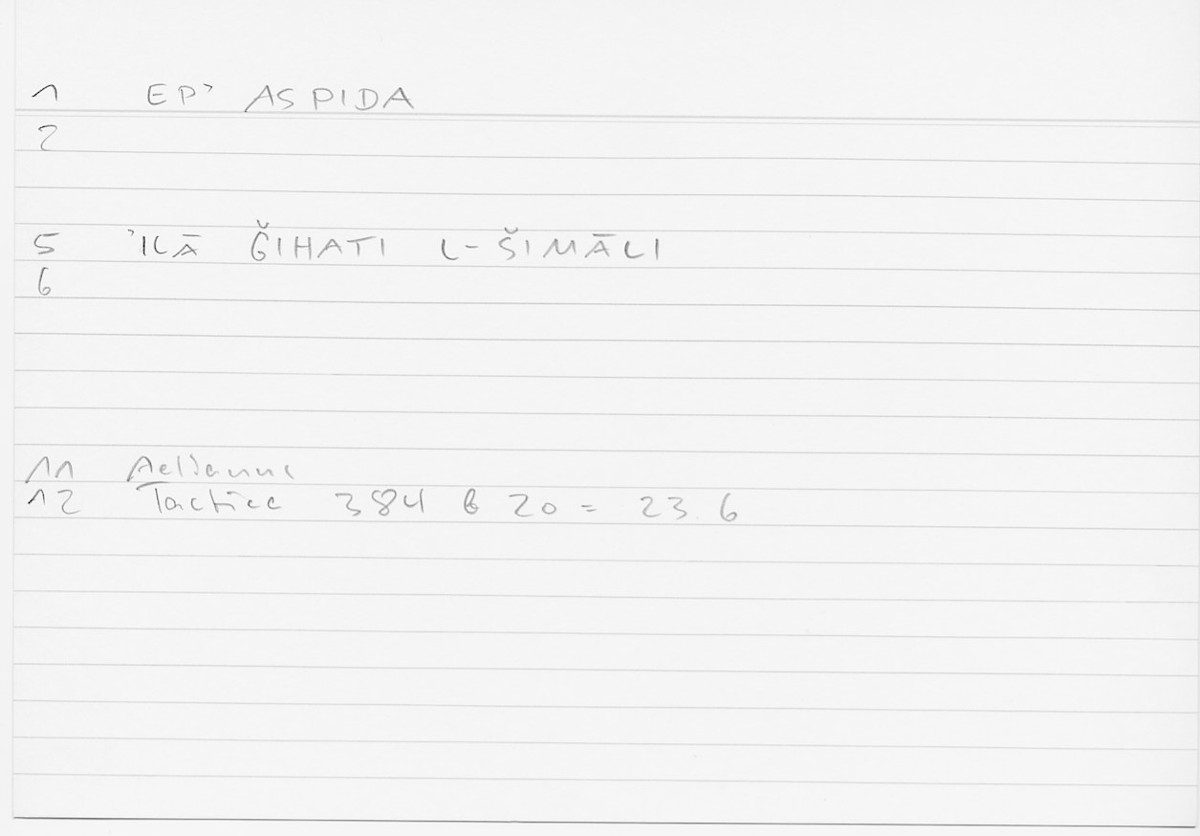 1 EP' ASPIDA
2
5 'ILĀ ĞIHATI L-ŠIMĀLI
6
11 Aelianus
12 Tactica 384 b 20 = 23.6